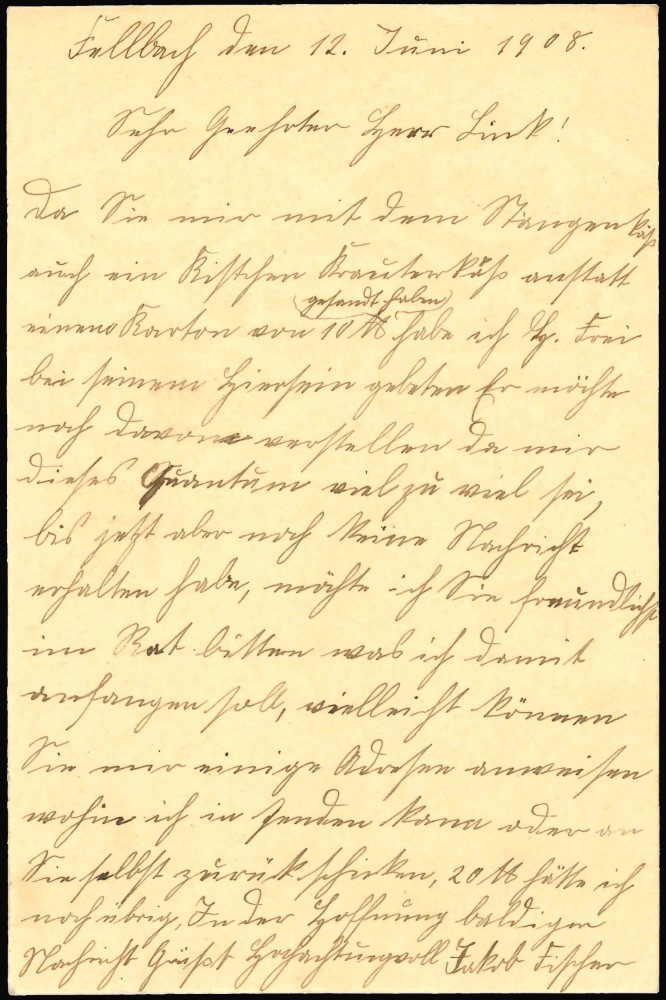 Fellbach den 12. Juni 1908.
Sehr Geehrter Herr Link!
Da Sie mir mit dem Stangenkäß
auch ein Kistchen Kräuterkäß anstatt
(gesandt haben)
einem Karton von 10 ℔ habe ich H. Frei
bei seinem Hiersein gebeten Er möchte
noch davon verstellen da mir
dieses Quantum viel zu viel sei,
bis jetzt aber noch keine Nachricht
erhalten habe, möchte ich Sie freundlichst
im Rat bitten was ich damit
anfangen soll, vielleicht können
Sie mir einige Adresen anweisen
wohin ich in senden kann oder an
Sie selbst zurück schicken, 20 ℔ hätte ich
noch übrig, In der Hoffnung baldiger
Nachricht Grüßt Hochachtungvoll Jakob Fischer